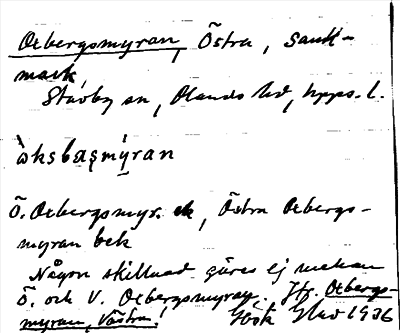 Oxbergsmyran, Östra, sank-
mark,
Stavby sn, Olands hd, Upps. l.
ὼksbærs̩mýran
Ö. Oxbergsmyr. ek, Östra Oxbergs-
myran bek
Någon skillnad göres ej mellan
Ö. och V. Oxbergsmyran. Jfr. Oxbergs-
myran, Västra!
1936